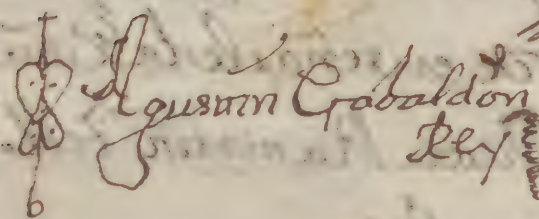 Agustin Gabaldon
Rey